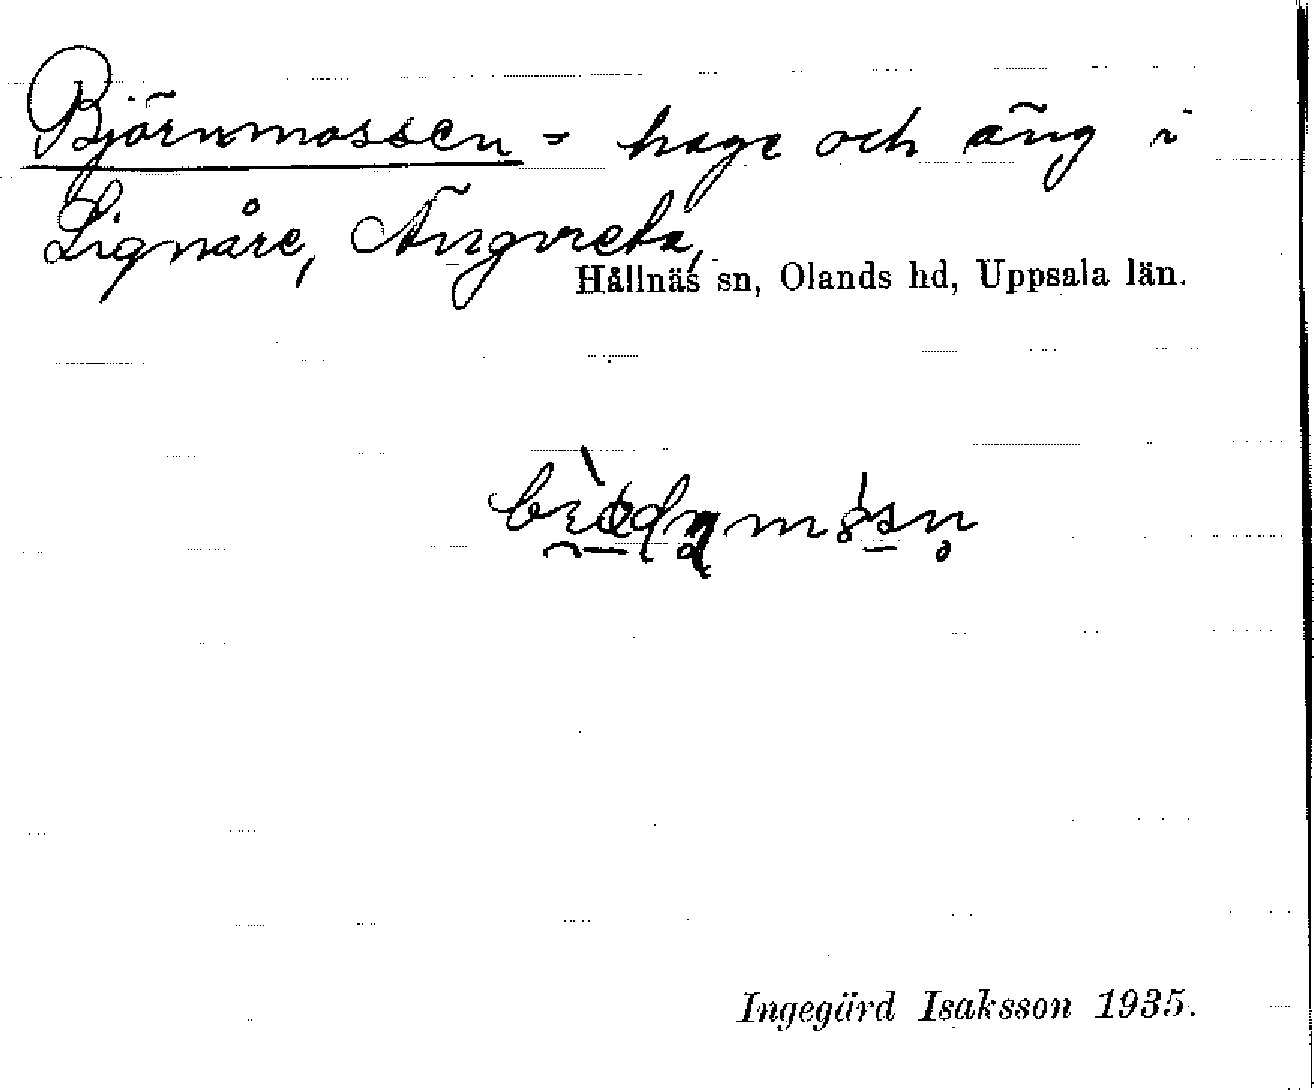 Björnmossen = hage och äng i
Lignåre, Ängvreta,
Hållnäs sn, Olands hd, Uppsala län.
Ingegärd Isaksson 1935.